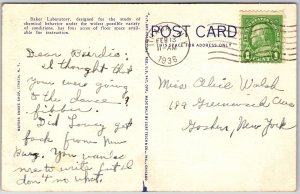 Baker Laboratory, designed for the study of
chemical behavior under the widest possible variety
of conditions, has five acres of floor space avail-
able for instruction.
POST CARD
THIS SPACE FOR ADDRESS ONLY
FEB 13
11 AM
1936
1
Dear Burdie:
I thought that
you were going
to the dance?
fibber.
Did Louey get
back from New
Burg. You wanted
me to write but I
don't no what.
Miss Alice Walsh
189 Greenwood Ave
Goshen, New York